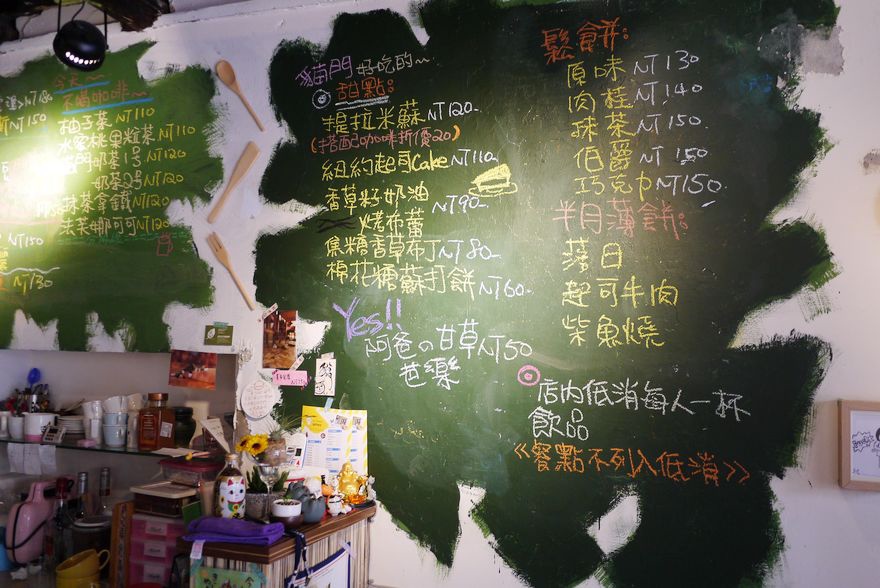 今天~
不喝咖啡
NT150
柚子茶 NT110
水蜜桃果粒茶 NT110
奶茶1号 NT120
奶茶2号 NT120
抹茶拿鐵 NT120
可可 NT120
NT150
NT130
貓門 好吃的~
甜點:
提拉米蘇 NT120-
(搭配咖啡折價20)
紐約起司Cake NT110-
香草籽奶油
烤布蕾 NT90-
焦糖香草布丁 NT80-
棉花糖蘇打餅 NT60-
Yes!!
阿爸の甘草 NT50
芭樂
鬆餅:
原味 NT130
肉桂 NT140
抹茶 NT150.
伯爵 NT150
巧克力 NT150.
半月薄餅:
落日
起司牛肉
柴魚燒
店內低消每人一杯
飲品
《餐點不列入低消》